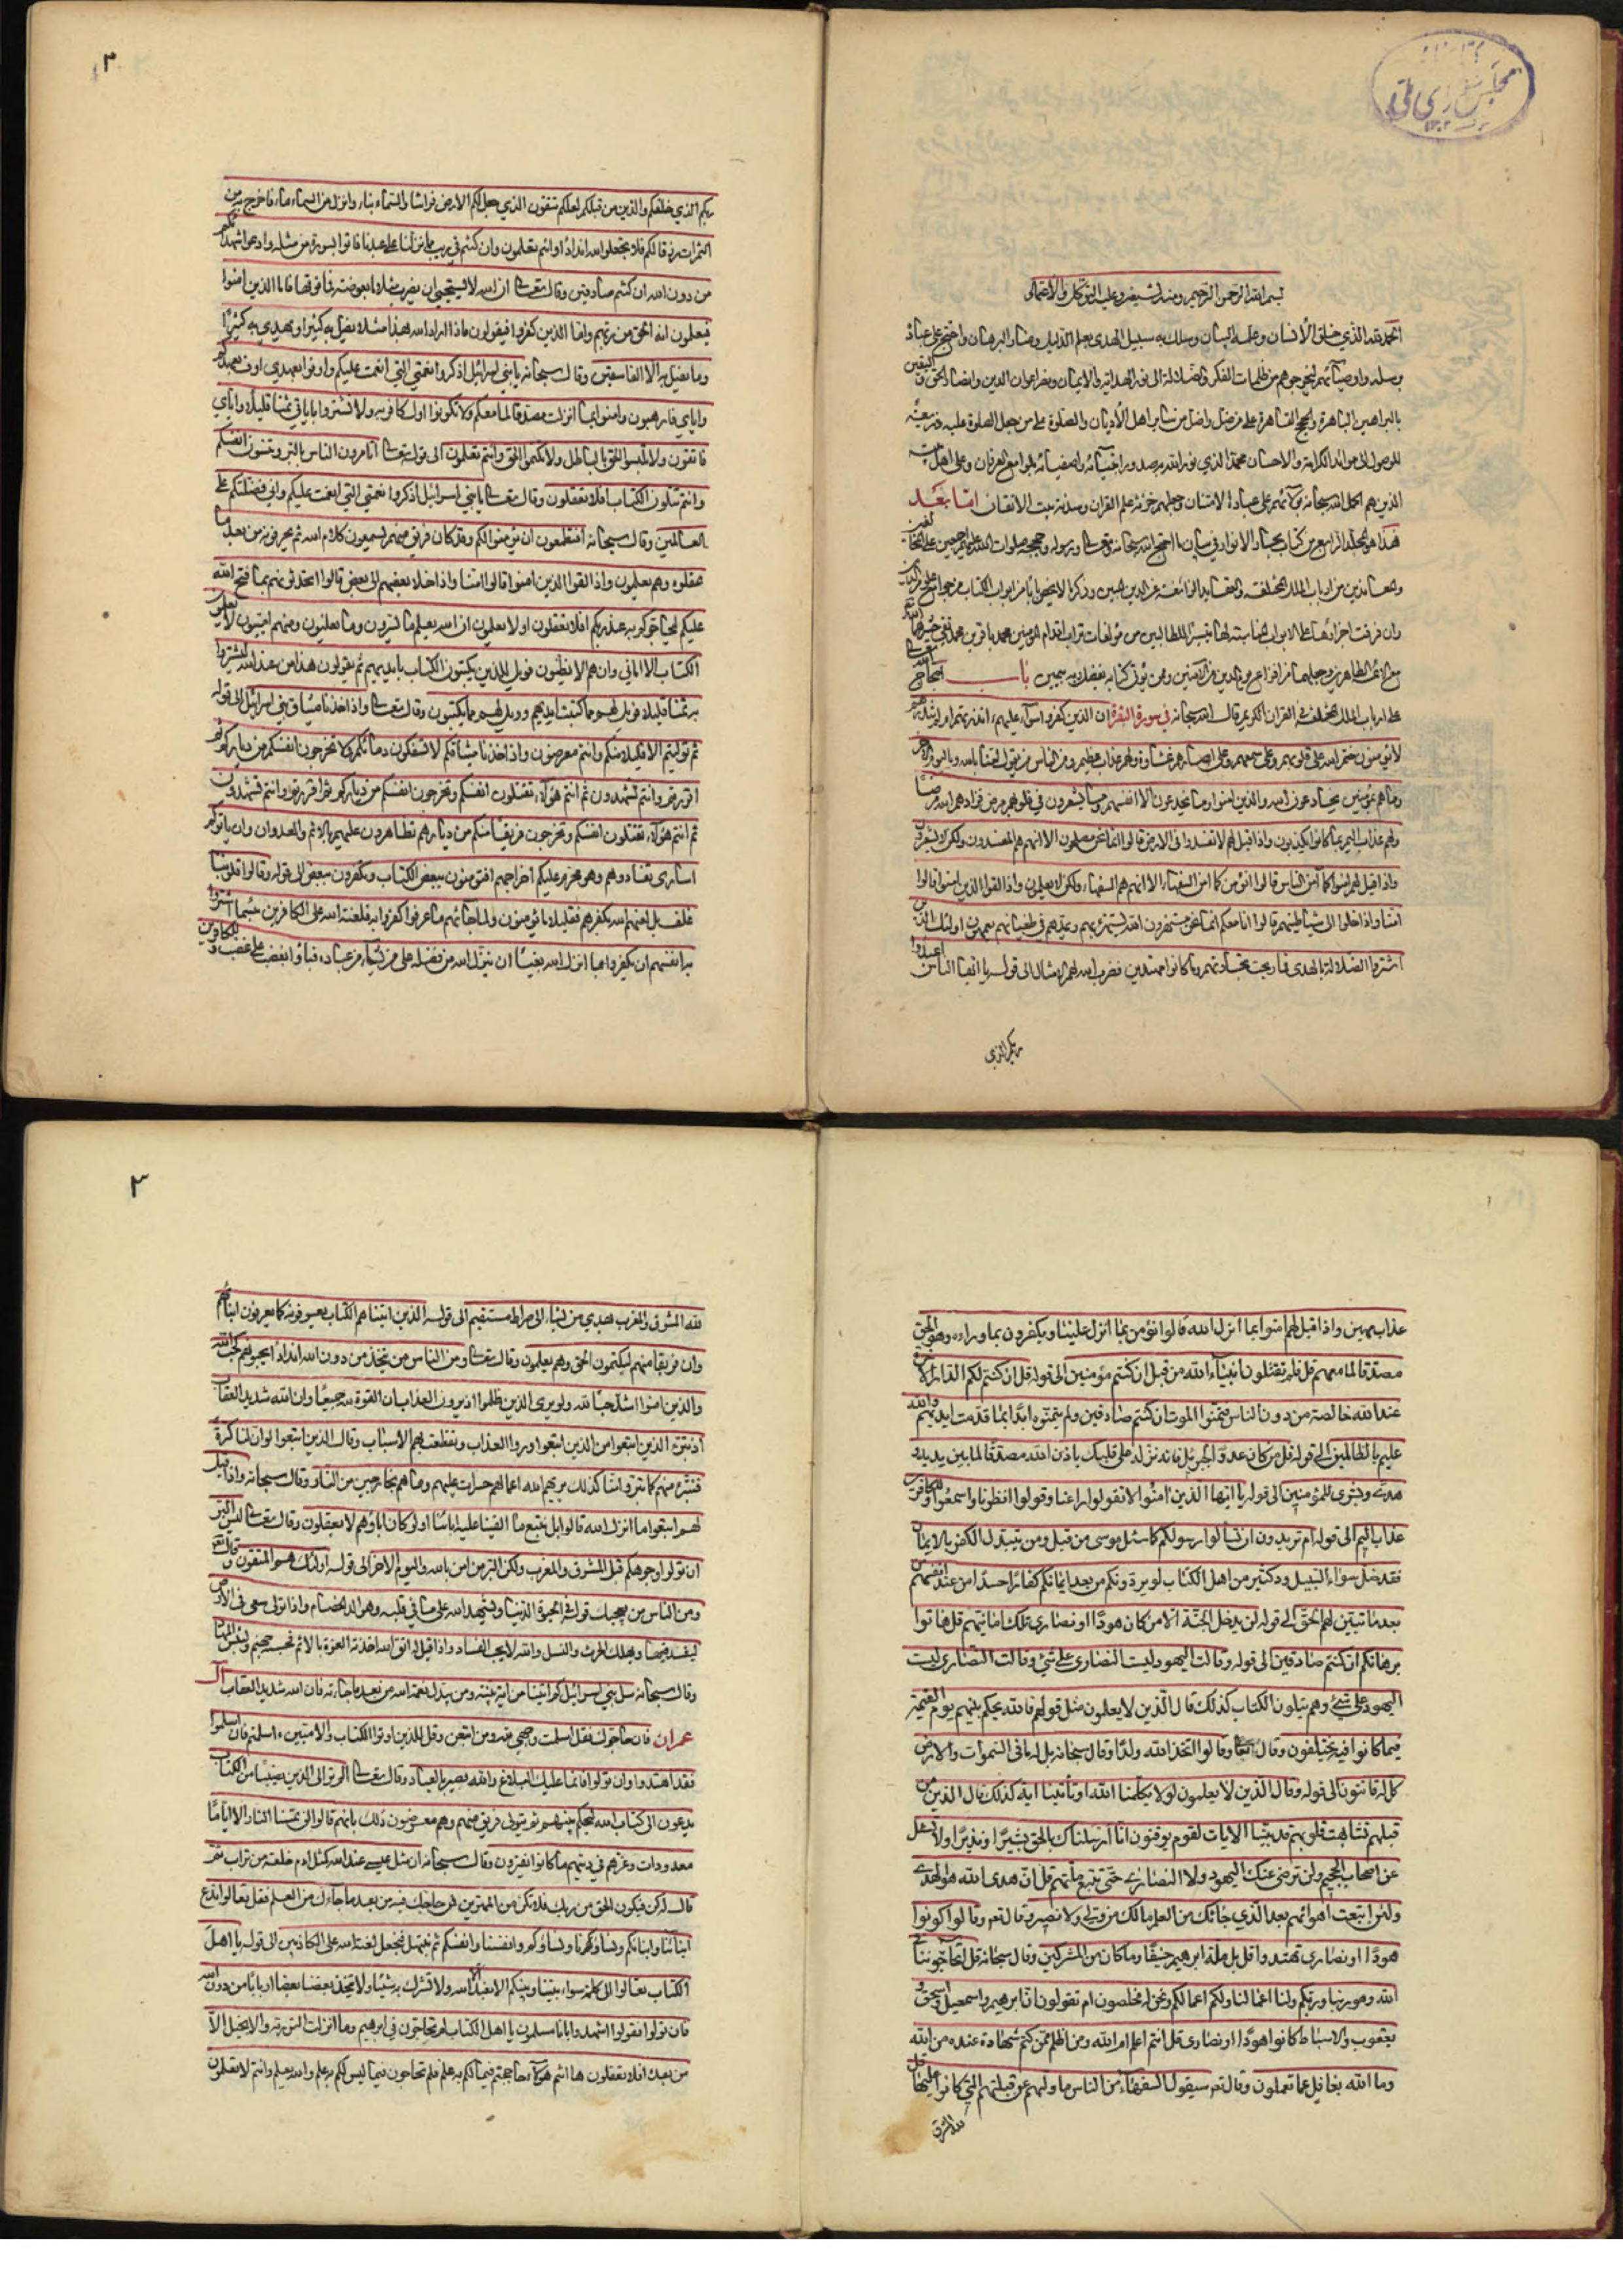 مجلس شورای ملی
بسم الله الرحمن الرحيم ومنه نستعين وعليه التوكل في الأعمال
الحمد لله الذي خلق الانسان وعلمه البيان وسلك به سبيل الهدى بعلم الدليل ومنار البرهان واحتج على عباده
برسله واوصيائهم ليخرجوهم من ظلمات الفكر والضلالة الى نور الهداية والايمان ونصر اعوان الدين وانصار الحق واليقين
بالبراهين الباهرة والحجج القاهرة على من ضل واضل من ساير اهل الأديان والصلوة على من جعل الصلوة عليه ذريعة
للوصول الى موائد الكرامة والاحسان محمد الذي نور الله صدور انبيائه واصفيائه بلوامع العرفان وعلى اهل بيته
الذين هم اكمل الله سبحانه بولائهم على عباده الامتنان وجعلهم خزنة علم القران وسدنة بيت الايقان اما بعد
فهذا هو المجلد الرابع من كتاب بحار الانوار في بيان ما احتج الله سبحانه وتعالى ورسوله وحججه صلوات الله عليهم اجمعين على المخالفين
والمعاندين من ارباب الملل المختلفة والعقايد الزائغة عن الدين المبين وذكر ما لا يخص بابا من ابواب الكتاب من جوامع علوم الدين
وان فرقت اجزاؤها على الابواب المناسبة لها تيسيرا للطالبين من مؤلفات تراب اقدام المؤمنين محمد باقر بن محمد تقي حشرهما الله تعالى
مع الائمة الطاهرين وجعلهما من افزاع يوم الدين من الآمنين وممن يؤتى كتابه بفضله بيمين باب احتجاج الله تعالى
على ارباب الملل المختلفة في القران الكريم قال الله سبحانه في سورة البقرة ان الذين كفروا سواء عليهم ءانذرتهم ام لم تنذرهم
لا يؤمنون ختم الله على قلوبهم وعلى سمعهم وعلى ابصارهم غشاوة ولهم عذاب عظيم ومن الناس من يقول امنا بالله وباليوم الاخر
وما هم بمؤمنين يخادعون الله والذين امنوا وما يخدعون الا انفسهم وما يشعرون في قلوبهم مرض فزادهم الله مرضا
ولهم عذاب اليم بما كانوا يكذبون واذا قيل لهم لا تفسدوا في الارض قالوا انما نحن مصلحون الا انهم هم المفسدون ولكن لا يشعرون
واذا قيل لهم امنوا كما آمن الناس قالوا انؤمن كما آمن السفهاء الا انهم هم السفهاء ولكن لا يعلمون واذا لقوا الذين امنوا قالوا
امنا واذا خلوا الى شياطينهم قالوا انا معكم انما نحن مستهزؤن الله يستهزئ بهم ويمدهم في طغيانهم يعمهون اولئك الذين
اشتروا الضلالة بالهدى فما ربحت تجارتهم وما كانوا مهتدين فضرب الله لهم الامثال الى قوله يا ايها الناس اعبدوا
ربكم الذي
٢
ربكم الذي خلقكم والذين من قبلكم لعلكم تتقون الذي جعل لكم الارض فراشا والسماء بناء وانزل من السماء ماء فاخرج به من
الثمرات رزقا لكم فلا تجعلوا لله اندادا وانتم تعلمون وان كنتم في ريب مما نزلنا على عبدنا فاتوا بسورة من مثله وادعوا شهداءكم
من دون الله ان كنتم صادقين وقال تعالى ان الله لا يستحيي ان يضرب مثلا ما بعوضة فما فوقها فاما الذين امنوا
فيعلمون انه الحق من ربهم واما الذين كفروا فيقولون ماذا اراد الله بهذا مثلا يضل به كثيرا ويهدي به كثيرا
وما يضل به الا الفاسقين وقال سبحانه يا بني اسرائيل اذكروا نعمتي التي انعمت عليكم واوفوا بعهدي اوف بعهدكم
واياي فارهبون وامنوا بما انزلت مصدقا لما معكم ولا تكونوا اول كافر به ولا تشتروا باياتي ثمنا قليلا واياي
فاتقون ولا تلبسوا الحق بالباطل ولا تكتموا الحق وانتم تعلمون الى قوله تعالى اتامرون الناس بالبر وتنسون انفسكم
وانتم تتلون الكتاب افلا تعقلون وقال تعالى يا بني اسرائيل اذكروا نعمتي التي انعمت عليكم واني فضلتكم على
العالمين وقال سبحانه افتطمعون ان يؤمنوا لكم وقد كان فريق منهم يسمعون كلام الله ثم يحرفونه من بعد ما
عقلوه وهم يعلمون واذا لقوا الذين امنوا قالوا امنا واذا خلا بعضهم الى بعض قالوا اتحدثونهم بما فتح الله
عليكم ليحاجوكم به عند ربكم افلا تعقلون اولا يعلمون ان الله يعلم ما يسرون وما يعلنون ومنهم اميون لا يعلمون
الكتاب الا اماني وان هم الا يظنون فويل للذين يكتبون الكتاب بايديهم ثم يقولون هذا من عند الله ليشتروا
به ثمنا قليلا فويل لهم مما كتبت ايديهم وويل لهم مما يكسبون وقال تعالى واذ اخذنا ميثاق بني اسرائيل الى قوله
ثم توليتم الا قليلا منكم وانتم معرضون واذ اخذنا ميثاقكم لا تسفكون دمائكم ولا تخرجون انفسكم من دياركم ثم
اقررتم وانتم تشهدون ثم انتم هؤلاء تقتلون انفسكم وتخرجون انفسكم من دياركم ثم اقررتم وانتم تشهدون
ثم انتم هؤلاء تقتلون انفسكم وتخرجون فريقا منكم من ديارهم تظاهرون عليهم بالاثم والعدوان وان ياتوكم
اسارى تفادوهم وهو محرم عليكم اخراجهم افتؤمنون ببعض الكتاب وتكفرون ببعض الى قوله وقالوا قلوبنا
غلف بل لعنهم الله بكفرهم فقليلا ما يؤمنون ولما جائهم ما عرفوا كفروا به فلعنة الله على الكافرين بئسما اشتروا
به انفسهم ان يكفروا بما انزل الله بغيا ان ينزل الله من فضله على من يشاء من عباده فباؤا بغضب على غضب وللكافرين
عذاب مهين واذا قيل لهم امنوا بما انزل الله قالوا نؤمن بما انزل علينا ويكفرون بما وراءه وهو الحق
مصدقا لما معهم قل فلم تقتلون انبياء الله من قبل ان كنتم مؤمنين الى قوله قل ان كنتم لكم الدار الاخرة
عند الله خالصة من دون الناس فتمنوا الموت ان كنتم صادقين ولم يتمنوه ابدا بما قدمت ايديهم والله
عليم بالظالمين الى قوله قل من كان عدوا لجبريل فانه نزله على قلبك باذن الله مصدقا لما بين يديه
هدى وبشرى للمؤمنين الى قوله يا ايها الذين امنوا لا تقولوا راعنا وقولوا انظرنا واسمعوا وللكافرين
عذاب اليم الى قوله ام تريدون ان تسالوا رسولكم كما سئل موسى من قبل ومن يتبدل الكفر بالايمان
فقد ضل سواء السبيل ود كثير من اهل الكتاب لو يردونكم من بعد ايمانكم كفارا حسدا من عند انفسهم من
بعد ما تبين لهم الحق الى قوله لن يدخل الجنة الا من كان هودا او نصارى تلك امانيهم قل هاتوا
برهانكم ان كنتم صادقين الى قوله وقالت اليهود ليست النصارى على شئ وقالت النصارى ليست
اليهود على شئ وهم يتلون الكتاب كذلك قال الذين لا يعلمون مثل قولهم فالله يحكم بينهم يوم القيمة
فيما كانوا فيه يختلفون وقال تعالى وقالوا اتخذ الله ولدا وقال سبحانه بل له ما في السموات والارض
كل له قانتون الى قوله وقال الذين لا يعلمون لولا يكلمنا الله او تأتينا اية كذلك قال الذين من
قبلهم تشابهت قلوبهم قد بينا الايات لقوم يوقنون انا ارسلناك بالحق بشيرا ونذيرا ولا تسئل
عن اصحاب الجحيم ولن ترضى عنك اليهود ولا النصارى حتى تتبع ملتهم قل ان هدى الله هو الهدى
ولئن اتبعت اهوائهم بعد الذي جائك من العلم مالك من ولي ولا نصير وقال تعم وقالوا كونوا
هودا او نصارى تهتدوا قل بل ملة ابرهيم حنيفا وما كان من المشركين وقال سبحانه قل اتحاجوننا في
الله وهو ربنا وربكم ولنا اعمالنا ولكم اعمالكم ونحن له مخلصون ام تقولون ان ابرهيم واسمعيل واسحق و
يعقوب والاسباط كانوا هودا او نصارى قل انتم اعلم ام الله ومن اظلم ممن كتم شهادة عنده من الله
وما الله بغافل عما تعملون وقال تعم سيقول السفهاء من الناس ما وليهم عن قبلتهم التي كانوا عليها قل
لله المشرق
٣
لله المشرق والمغرب يهدي من يشاء الى صراط مستقيم الى قوله الذين اتيناهم الكتاب يعرفونه كما يعرفون ابناءهم
وان فريقا منهم ليكتمون الحق وهم يعلمون وقال تعالى ومن الناس من يتخذ من دون الله اندادا يحبونهم كحب الله
والذين امنوا اشد حبا لله ولو يرى الذين ظلموا اذ يرون العذاب ان القوة لله جميعا وان الله شديد العقاب
اذ تبرء الذين اتبعوا من الذين اتبعوا وراوا العذاب وتقطعت بهم الاسباب وقال الذين اتبعوا لو ان لنا كرة
فنتبرء منهم كما تبرؤا منا كذلك يريهم الله اعمالهم حسرات عليهم وما هم بخارجين من النار وقال سبحانه واذا قيل
لهم اتبعوا ما انزل الله قالوا بل نتبع ما الفينا عليه اباءنا اولو كان اباؤهم لا يعقلون وقال تعالى ليس البر
ان تولوا وجوهكم قبل المشرق والمغرب ولكن البر من امن بالله واليوم الاخر الى قوله اولئك هم المتقون وقال تعم
ومن الناس من يعجبك قوله في الحيوة الدنيا ويشهد الله على ما في قلبه وهو الد الخصام واذا تولى سعى في الارض
ليفسد فيها ويهلك الحرث والنسل والله لا يحب الفساد واذا قيل له اتق الله اخذته العزة بالاثم فحسبه جهنم ولبئس المهاد
وقال سبحانه سل بني اسرائيل كم اتينا من اية بينة ومن يبدل نعمة الله من بعد ما جائته فان الله شديد العقاب آل
عمران فان حاجوك فقل اسلمت وجهي لله ومن اتبعن وقل للذين اوتوا الكتاب والاميين ءاسلمتم فان اسلموا
فقد اهتدوا وان تولوا فانما عليك البلاغ والله بصير بالعباد وقال تعالى الم تر الى الذين اوتوا نصيبا من الكتاب
يدعون الى كتاب الله ليحكم بينهم ثم يتولى فريق منهم وهم معرضون ذلك بانهم قالوا لن تمسنا النار الا اياما
معدودات وغرهم في دينهم ما كانوا يفترون وقال سبحانه ان مثل عيسى عند الله كمثل ادم خلقه من تراب ثم
قال له كن فيكون الحق من ربك فلا تكن من الممترين فمن حاجك فيه من بعد ما جاءك من العلم فقل تعالوا ندع
ابنائنا وابنائكم ونسائنا ونسائكم وانفسنا وانفسكم ثم نبتهل فنجعل لعنة الله على الكاذبين الى قوله يا اهل
الكتاب تعالوا الى كلمة سواء بيننا وبينكم الا نعبد الا الله ولا نشرك به شيئا ولا يتخذ بعضنا بعضا اربابا من دون الله
فان تولوا فقولوا اشهدوا بانا مسلمون يا اهل الكتاب لم تحاجون في ابرهيم وما انزلت التورية والانجيل الا
من بعده افلا تعقلون ها انتم هؤلاء حاججتم فيما لكم به علم فلم تحاجون فيما ليس لكم به علم والله يعلم وانتم لا تعلمون